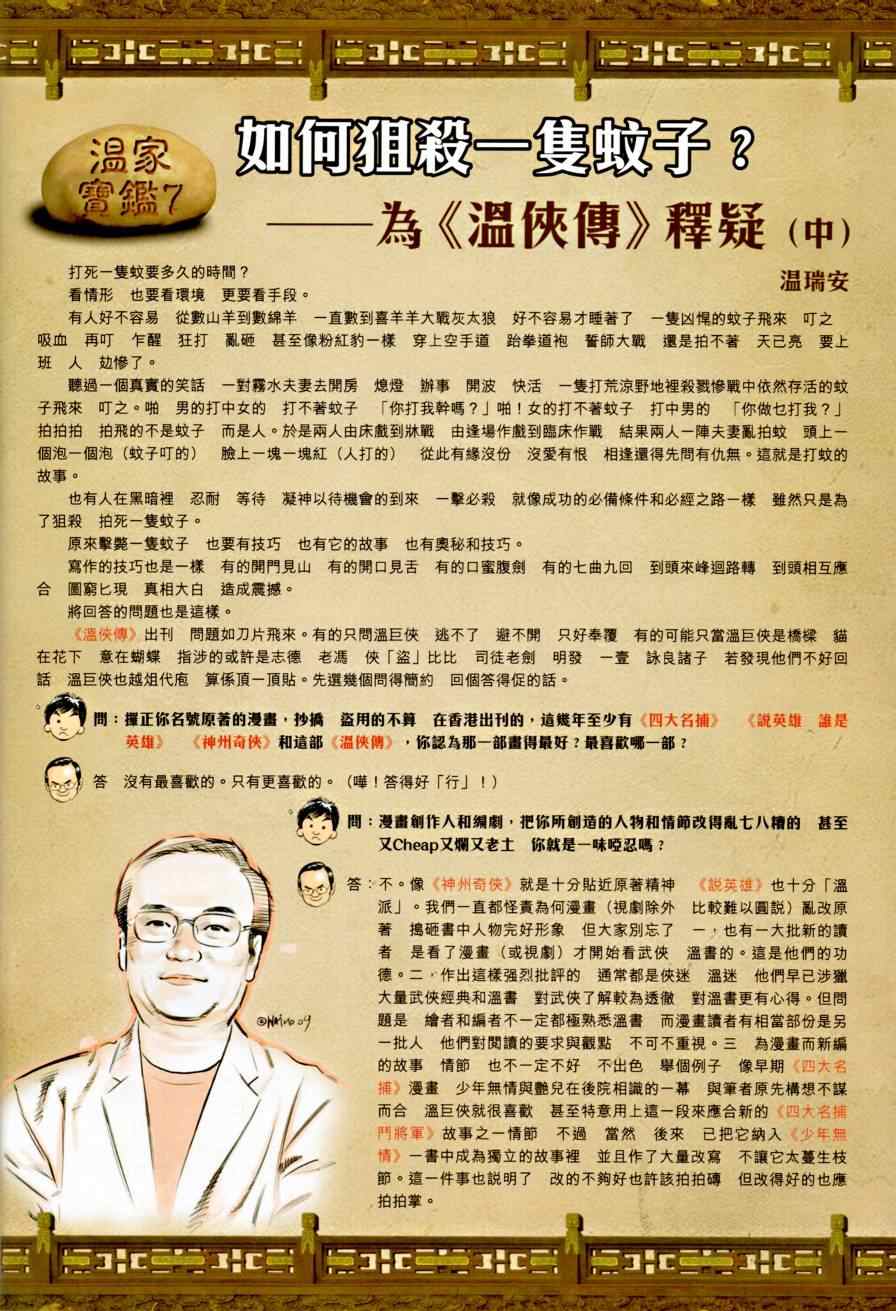 溫家
寶鑑7
如何狙殺一隻蚊子？
——為《溫俠傳》釋疑（中）
温瑞安
打死一隻蚊要多久的時間？
看情形　也要看環境　更要看手段。
有人好不容易　從數山羊到數綿羊　一直數到喜羊羊大戰灰太狼　好不容易才睡著了　一隻凶悍的蚊子飛來　叮之
吸血　再叮　乍醒　狂打　亂砸　甚至像粉紅豹一樣　穿上空手道　跆拳道袍　誓師大戰　還是拍不著　天已亮　要上
班　人　攰慘了。
聽過一個真實的笑話　一對霧水夫妻去開房　熄燈　辦事　開波　快活　一隻打荒涼野地裡殺戮慘戰中依然存活的蚊
子飛來　叮之。啪　男的打中女的　打不著蚊子　「你打我幹嗎？」啪！女的打不著蚊子　打中男的　「你做乜打我？」
拍拍拍　拍飛的不是蚊子　而是人。於是兩人由床戲到牀戰　由逢場作戲到臨床作戰　結果兩人一陣夫妻亂拍蚊　頭上一
個泡一個泡（蚊子叮的）　臉上一塊一塊紅（人打的）　從此有緣沒份　沒愛有恨　相逢還得先問有仇無。這就是打蚊的
故事。
也有人在黑暗裡　忍耐　等待　凝神以待機會的到來　一擊必殺　就像成功的必備條件和必經之路一樣　雖然只是為
了狙殺　拍死一隻蚊子。
原來擊斃一隻蚊子　也要有技巧　也有它的故事　也有奧秘和技巧。
寫作的技巧也是一樣　有的開門見山　有的開口見舌　有的口蜜腹劍　有的七曲九回　到頭來峰迴路轉　到頭相互應
合　圖窮匕現　真相大白　造成震撼。
將回答的問題也是這樣。
《溫俠傳》出刊　問題如刀片飛來。有的只問溫巨俠　逃不了　避不開　只好奉覆　有的可能只當溫巨俠是橋樑　貓
在花下　意在蝴蝶　指涉的或許是志德　老馮　俠「盜」比比　司徒老劍　明發　一壹　詠良諸子　若發現他們不好回
話　溫巨俠也越俎代庖　算係頂一頂貼。先選幾個問得簡約　回個答得促的話。
問：擺正你名號原著的漫畫，抄橋　盜用的不算　在香港出刊的，這幾年至少有《四大名捕》　《說英雄　誰是
英雄》　《神州奇俠》和這部《溫俠傳》，你認為那一部畫得最好？最喜歡哪一部？
答　沒有最喜歡的。只有更喜歡的。（嘩！答得好「行」！）
問：漫畫創作人和編劇，把你所創造的人物和情節改得亂七八糟的　甚至
又Cheap又爛又老土　你就是一味啞忍嗎？
答：不。像《神州奇俠》就是十分貼近原著精神　《說英雄》也十分「溫
派」。我們一直都怪責為何漫畫（視劇除外　比較難以圓説）亂改原
著　搗砸書中人物完好形象　但大家別忘了　一，也有一大批新的讀
者　是看了漫畫（或視劇）才開始看武俠　溫書的。這是他們的功
德。二，作出這樣强烈批評的　通常都是俠迷　溫迷　他們早已涉獵
大量武俠經典和溫書　對武俠了解較為透徹　對溫書更有心得。但問
題是　繪者和編者不一定都極熟悉溫書　而漫畫讀者有相當部份是另
一批人　他們對閱讀的要求與觀點　不可不重視。三　為漫畫而新編
的故事　情節　也不一定不好　不出色　舉個例子　像早期《四大名
捕》漫畫　少年無情與艷兒在後院相識的一幕　與筆者原先構想不謀
而合　溫巨俠就很喜歡　甚至特意用上這一段來應合新的《四大名捕
鬥將軍》故事之一情節　不過　當然　後來　已把它納入《少年無
情》一書中成為獨立的故事裡　並且作了大量改寫　不讓它太蔓生枝
節。這一件事也説明了　改的不夠好也許該拍拍磚　但改得好的也應
拍拍掌。